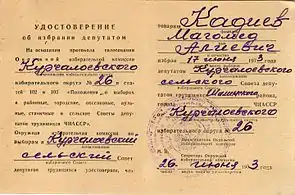 УДОСТОВЕРЕНИЕ
об избрании депутатом
На основании протокола голосования
избирательной комиссии
Курчалоевского
избирательного округа № 26 и ста-
тей 102 и 103 «Положения о выборах
в районные, городские, поселковые, аульные,
станичные и сельские Советы депу-
татов трудящихся ЧИАССР»,
Окружная комиссия по
выборам в Курчалоевский
сельский Совет
депутатов трудящихся удостоверяет, что
товарищ Кадиев
Магомед
Алиевич
избран 17 июня 1973 г.
депутатом Курчалоевского
сельского Совета
депутатов трудящихся Шалинского
ЧИАССР от
Курчалоевского
избирательного округа № 26
Председатель Окружной
избирательной комиссии
Секретарь Окружной
избирательной комиссии
26 июня 1973 г.